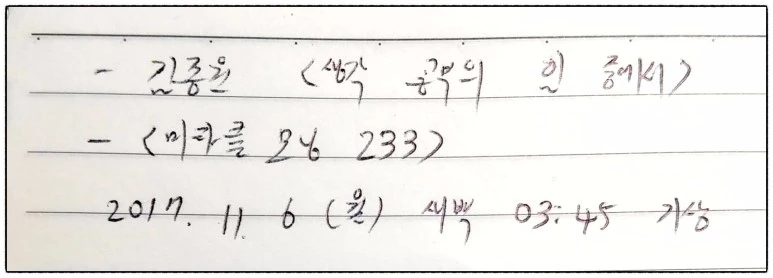 - 김종원 <생각 공부의 힘 중에서>
- <미라클 모닝 233>
2017. 11. 6 (월) 새벽 03:45 기상